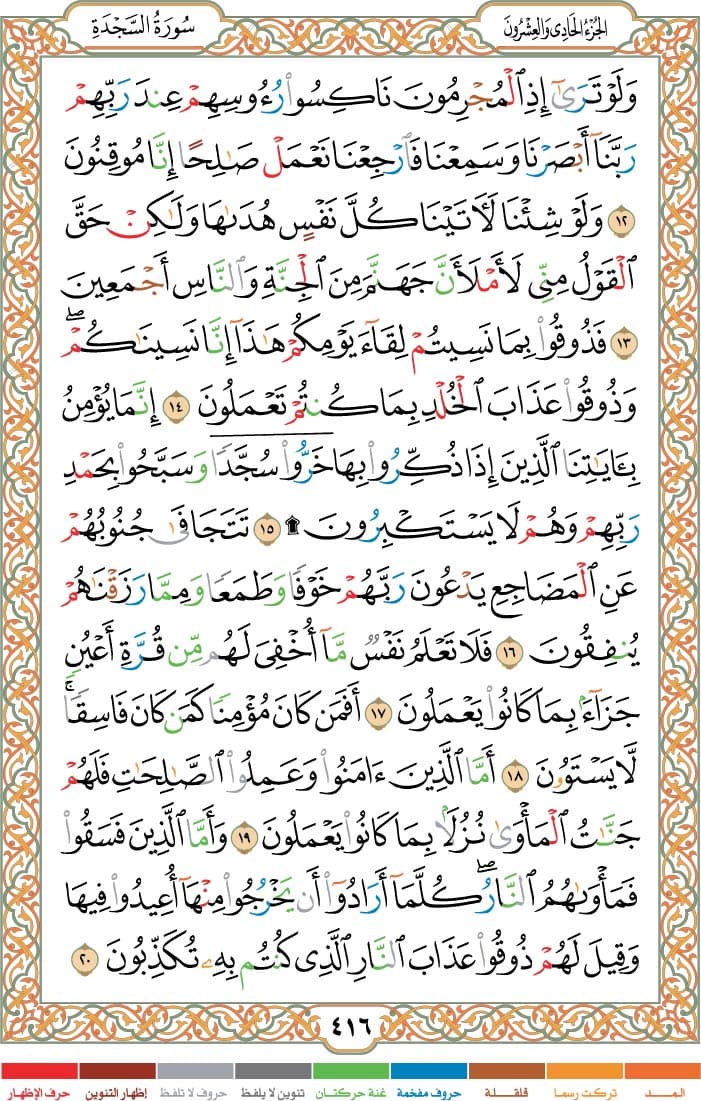 الجزء الحادي والعشرون
سورة السجدة
وَلَوْ تَرَىٰٓ إِذِ ٱلْمُجْرِمُونَ نَاكِسُوا۟ رُءُوسِهِمْ عِندَ رَبِّهِمْ
رَبَّنَآ أَبْصَرْنَا وَسَمِعْنَا فَٱرْجِعْنَا نَعْمَلْ صَٰلِحًا إِنَّا مُوقِنُونَ
١٢ وَلَوْ شِئْنَا لَءَاتَيْنَا كُلَّ نَفْسٍ هُدَىٰهَا وَلَٰكِنْ حَقَّ
ٱلْقَوْلُ مِنِّى لَأَمْلَأَنَّ جَهَنَّمَ مِنَ ٱلْجِنَّةِ وَٱلنَّاسِ أَجْمَعِينَ
١٣ فَذُوقُوا۟ بِمَا نَسِيتُمْ لِقَآءَ يَوْمِكُمْ هَٰذَآ إِنَّا نَسِينَٰكُمْ ۖ
وَذُوقُوا۟ عَذَابَ ٱلْخُلْدِ بِمَا كُنتُمْ تَعْمَلُونَ ١٤ إِنَّمَا يُؤْمِنُ
بِـَٔايَٰتِنَا ٱلَّذِينَ إِذَا ذُكِّرُوا۟ بِهَا خَرُّوا۟ سُجَّدًا وَسَبَّحُوا۟ بِحَمْدِ
رَبِّهِمْ وَهُمْ لَا يَسْتَكْبِرُونَ ۩ ١٥ تَتَجَافَىٰ جُنُوبُهُمْ
عَنِ ٱلْمَضَاجِعِ يَدْعُونَ رَبَّهُمْ خَوْفًا وَطَمَعًا وَمِمَّا رَزَقْنَٰهُمْ
يُنفِقُونَ ١٦ فَلَا تَعْلَمُ نَفْسٌ مَّآ أُخْفِىَ لَهُم مِّن قُرَّةِ أَعْيُنٍ
جَزَآءًۢ بِمَا كَانُوا۟ يَعْمَلُونَ ١٧ أَفَمَن كَانَ مُؤْمِنًا كَمَن كَانَ فَاسِقًا ۚ
لَّا يَسْتَوُۥنَ ١٨ أَمَّا ٱلَّذِينَ ءَامَنُوا۟ وَعَمِلُوا۟ ٱلصَّٰلِحَٰتِ فَلَهُمْ
جَنَّٰتُ ٱلْمَأْوَىٰ نُزُلًۢا بِمَا كَانُوا۟ يَعْمَلُونَ ١٩ وَأَمَّا ٱلَّذِينَ فَسَقُوا۟
فَمَأْوَىٰهُمُ ٱلنَّارُ ۖ كُلَّمَآ أَرَادُوٓا۟ أَن يَخْرُجُوا۟ مِنْهَآ أُعِيدُوا۟ فِيهَا
وَقِيلَ لَهُمْ ذُوقُوا۟ عَذَابَ ٱلنَّارِ ٱلَّذِى كُنتُم بِهِۦ تُكَذِّبُونَ ٢٠
٤١٦
المـد تركت رسما قلقلة حروف مفخمة غنة حركتان تنوين لا يلفظ حروف لا تلفظ إظهار التنوين حرف الإظهار